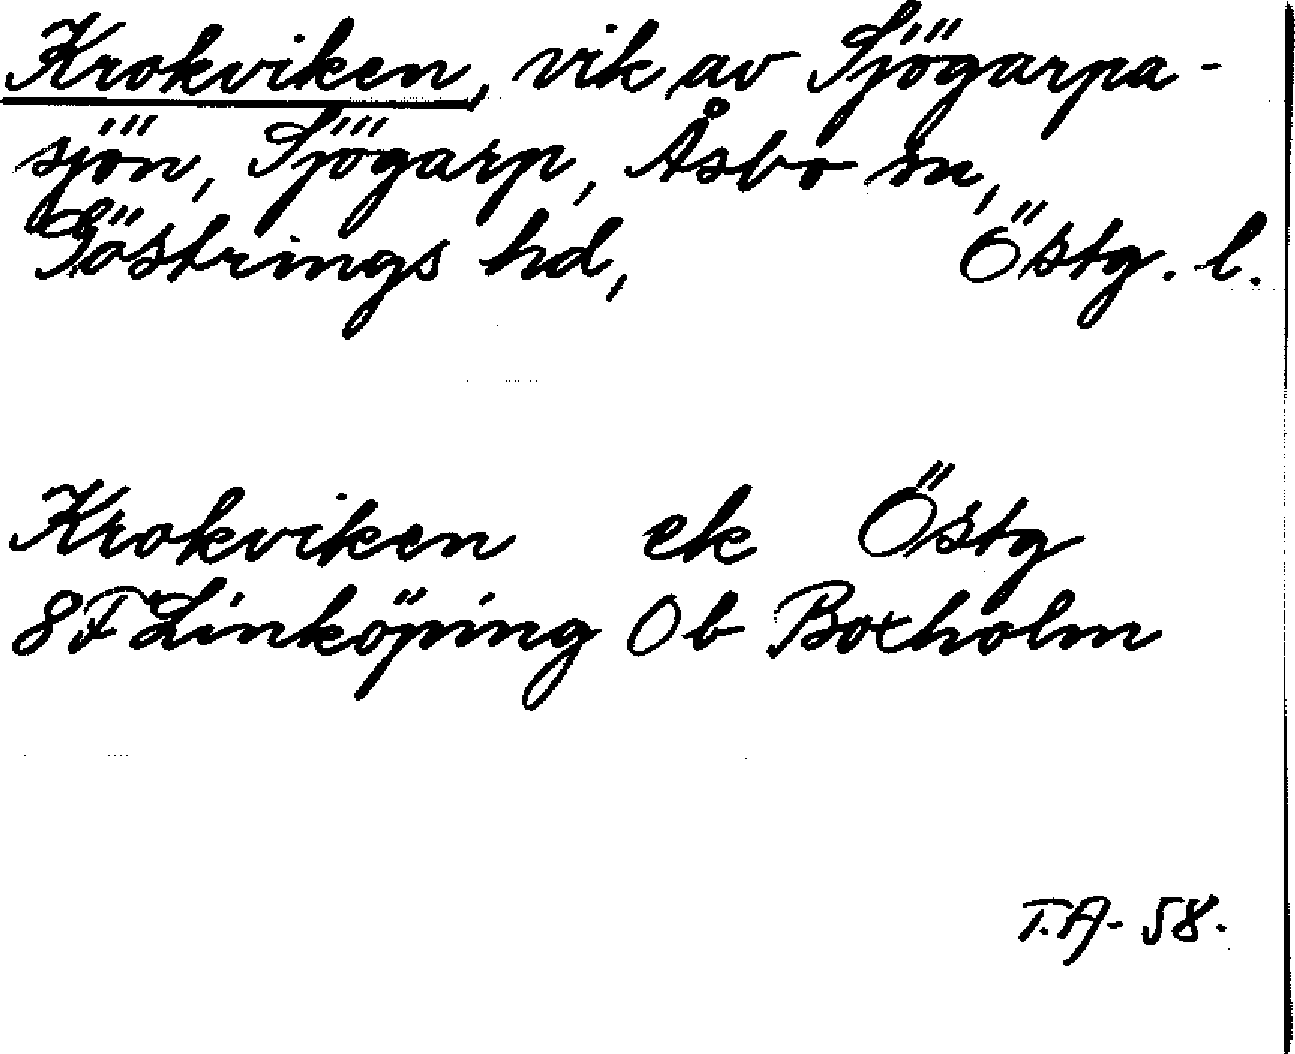 Krokviken, vik av Sjögarpa-
sjön, Sjögarp, Åsbo sn,
Göstrings hd, Östg. l.
Krokviken ek Östg
8F Linköping 0b Boxholm
T.A- 58.